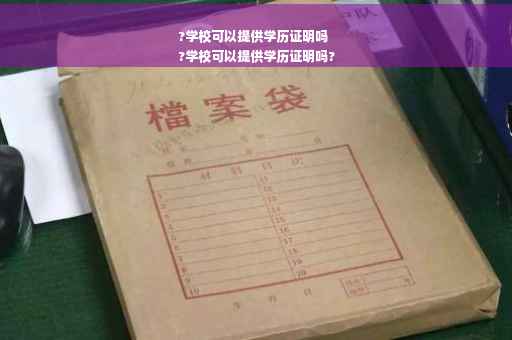 ?学校可以提供学历证明吗
?学校可以提供学历证明吗?
檔案袋
材料目次
1 11
2 12
3 13
4 14
5 15
6 16
7 17
8 18
9 19
10 20
年 月 日